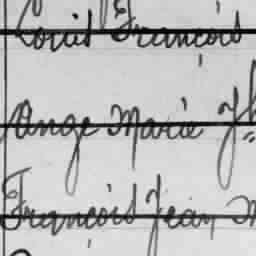 Louis François
Ange Marie
François Jean